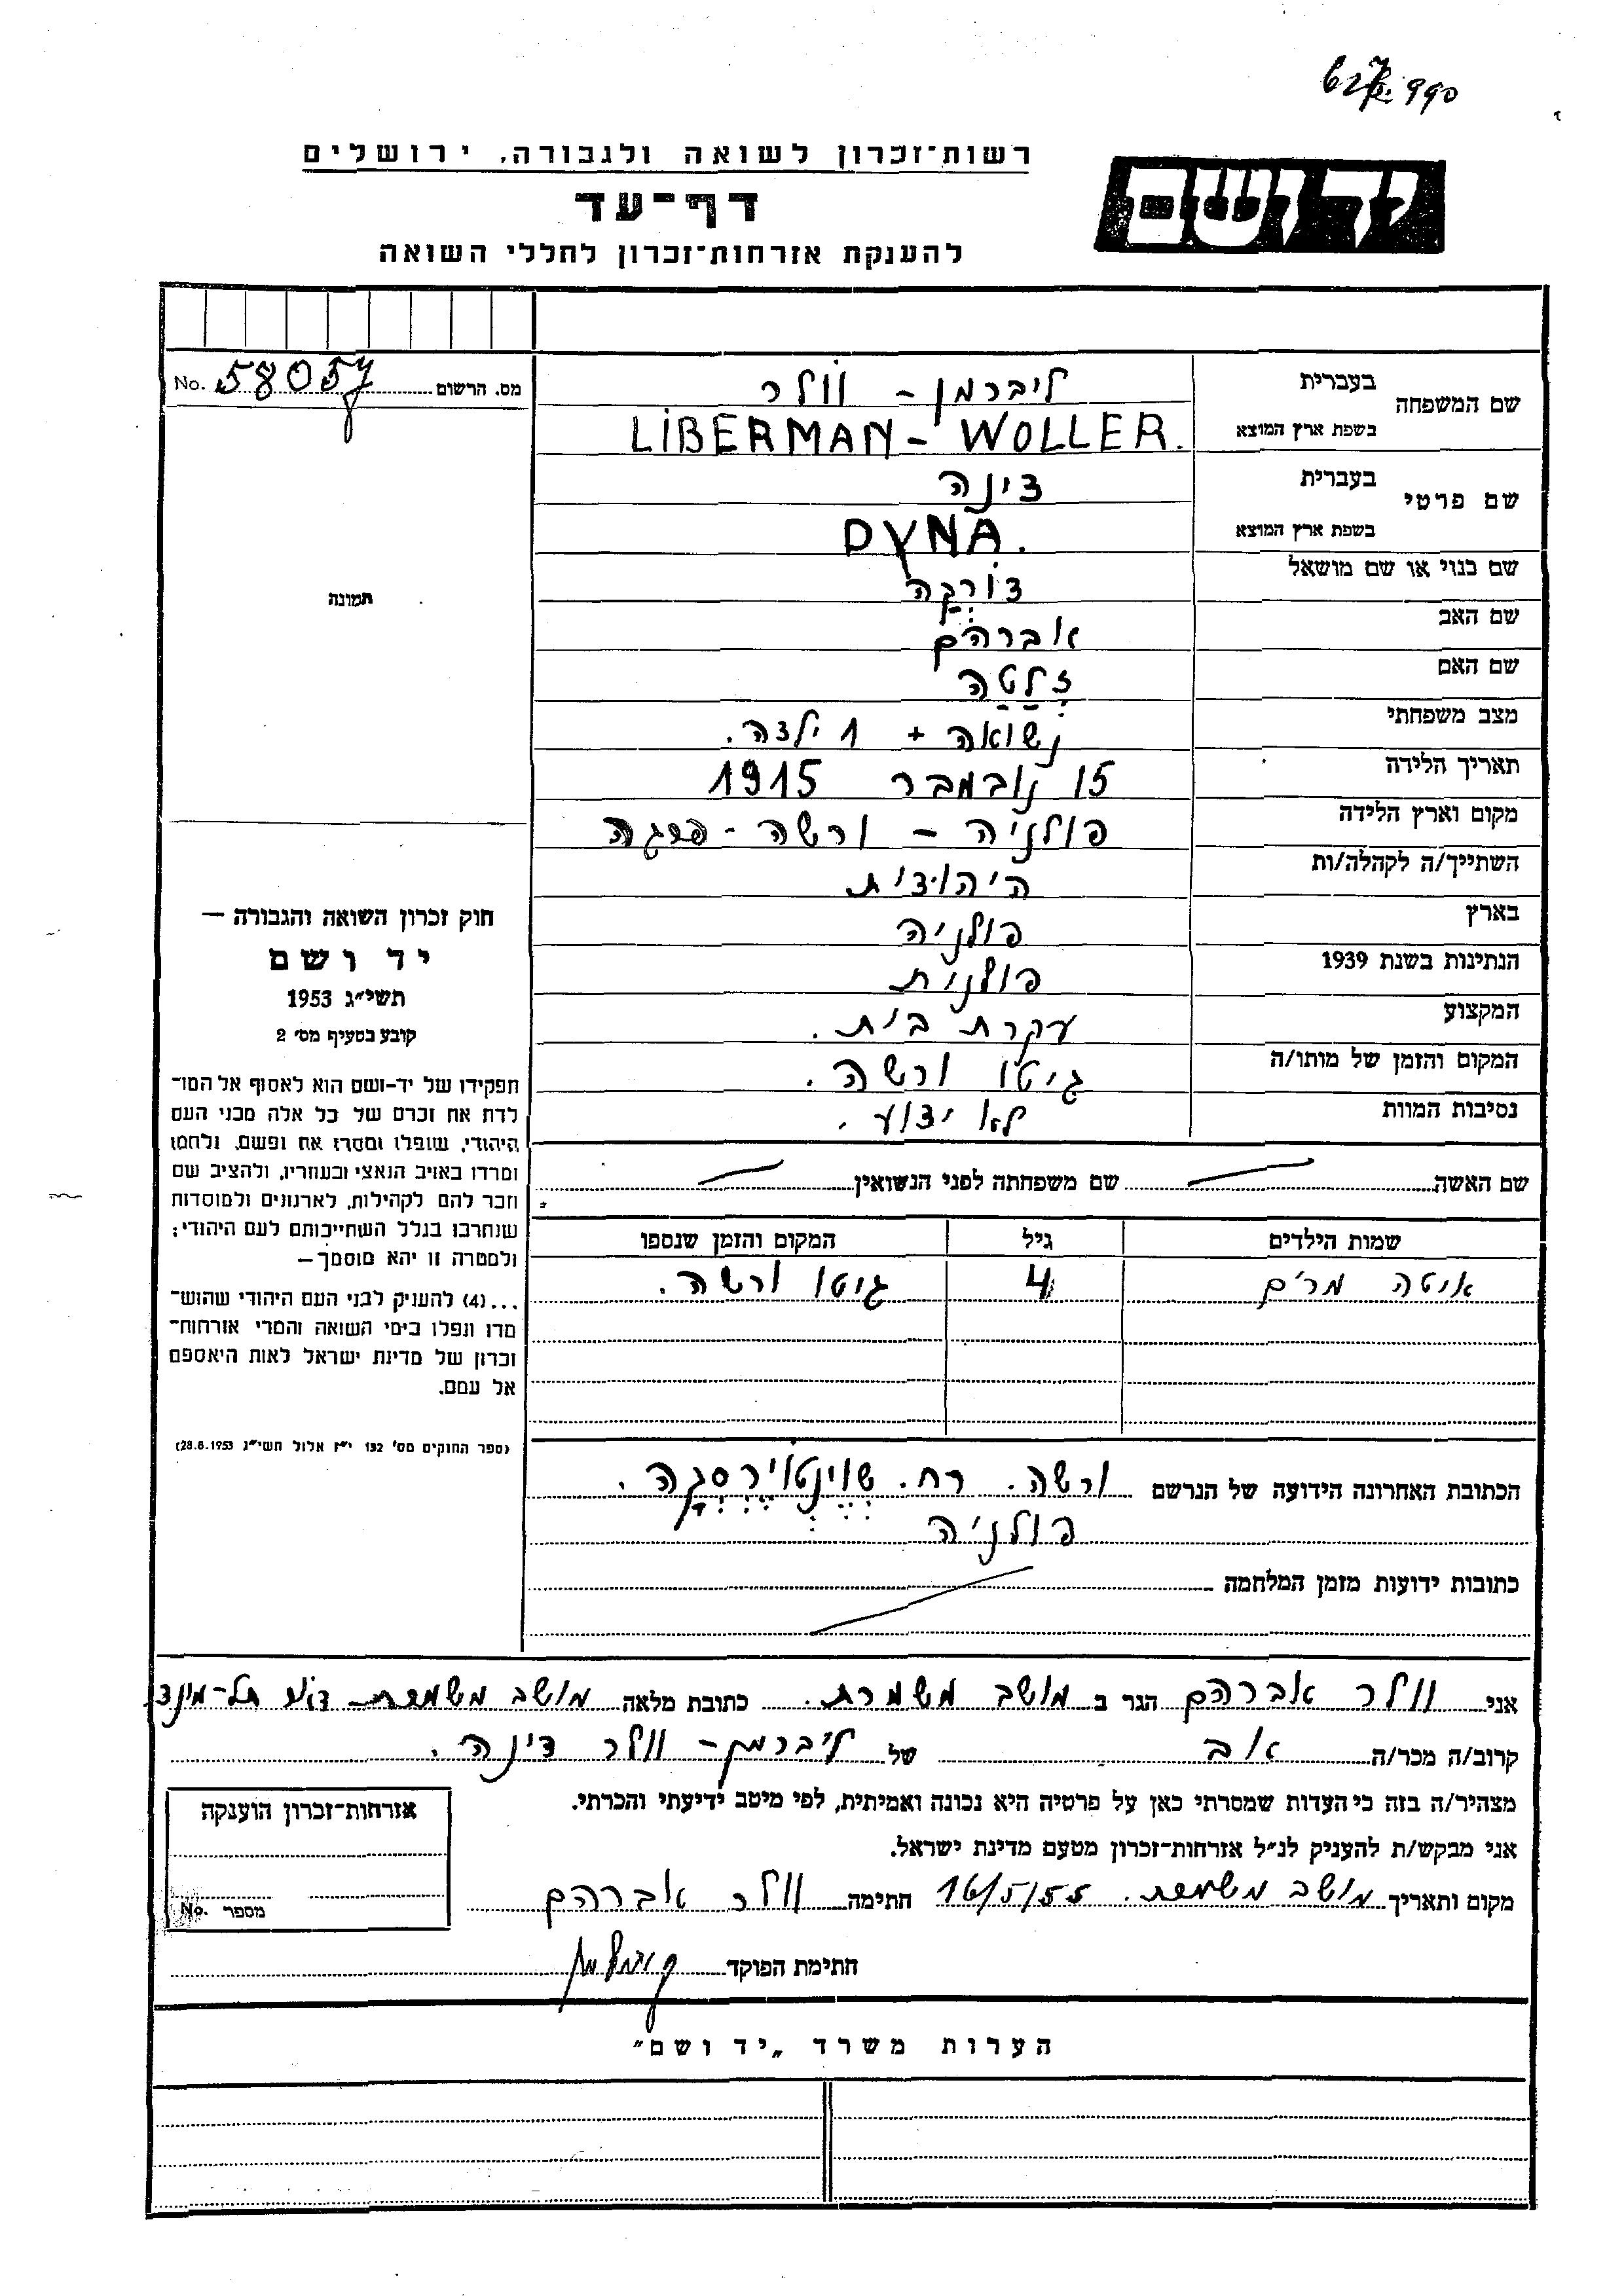 רשות־זכרון לשואה ולגבורה, ירושלים
יד ושם
דף־עד
להענקת אזרחות־זכרון לחללי השואה
מס. הרשום 58057 No.
שם המשפחה בעברית ליברמן - וולר
בשפת ארץ המוצא LIBERMAN - WOLLER.
שם פרטי בעברית דינה
בשפת ארץ המוצא DYNA.
שם כנוי או שם מושאל דורקה
שם האב אברהם
שם האם זלטה
מצב משפחתי נשואה + 1 ילדה.
תאריך הלידה 15 נובמבר 1915
מקום וארץ הלידה פולניה - ורשה - פרגה
השתייך/ה לקהלה/ות היהודית
בארץ פולניה
הנתינות בשנת 1939 פולנית
המקצוע עקרת בית.
המקום והזמן של מותו/ה גיטו ורשה.
נסיבות המוות לא ידוע.
תמונה
חוק זכרון השואה והגבורה —
יד ושם
תשי״ג 1953
קובע בסעיף מס׳ 2
תפקידו של יד-ושם הוא לאסוף אל המו־
לדת את זכרם של כל אלה מבני העם
היהודי, שנפלו ומסרו את נפשם, נלחמו
ומרדו באויב הנאצי ובעוזריו, ולהציב שם
וזכר להם לקהילות, לארגונים ולמוסדות
שנחרבו בגלל השתייכותם לעם היהודי;
ולמטרה זו יהא מוסמך —
...(4) להעניק לבני העם היהודי שהוש־
מדו ונפלו בימי השואה והמרי אזרחות־
זכרון של מדינת ישראל לאות היאספם
אל עמם.
(ספר החוקים מס׳ 132 י״ז אלול תשי״ג 28.8.1953)
שם האשה שם משפחתה לפני הנשואין
שמות הילדים גיל המקום והזמן שנספו
איטה מרים 4 גיטו ורשה.
הכתובת האחרונה הידועה של הנרשם ורשה. רח. שוינטוירסגה.
פולניה
כתובות ידועות מזמן המלחמה
אני וולר אברהם הגר ב מושב משמרת. כתובת מלאה מושב משמרת דאר תל-מונד.
קרוב/ה מכר/ה אב של ליברמן - וולר דינה.
מצהיר/ה בזה כי העדות שמסרתי כאן על פרטיה היא נכונה ואמיתית, לפי מיטב ידיעתי והכרתי.
אני מבקש/ת להעניק לנ״ל אזרחות־זכרון מטעם מדינת ישראל.
מקום ותאריך מושב משמרת. 16/5/55 חתימה וולר אברהם
חתימת הפוקד
אזרחות־זכרון הוענקה
מספר No.
הערות משרד „יד ושם״